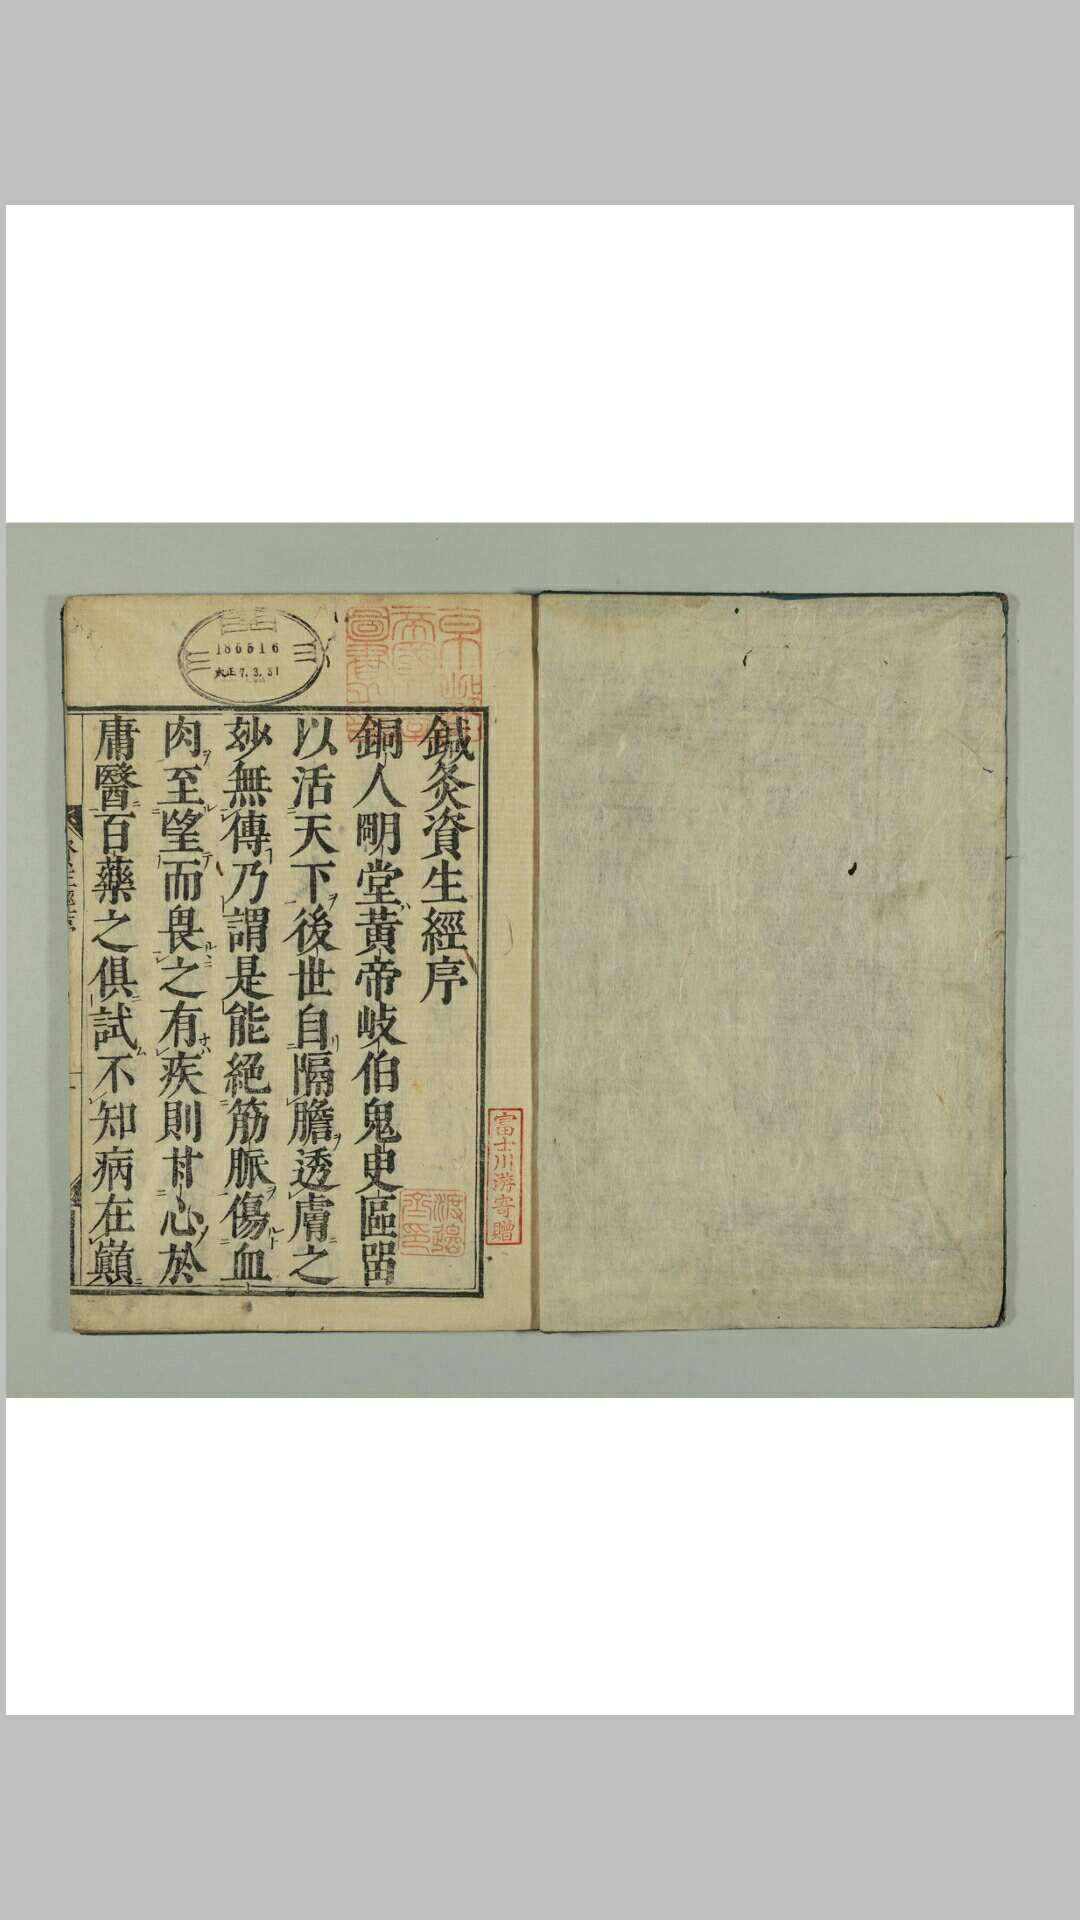 鍼灸資生經序
銅人明堂黃帝岐伯鬼臾區留
以活天下後世自隔膽透膚之
妙無傳乃謂是能絕筋脈傷血
肉至望而畏之有疾則甘心於
庸醫百藥之俱試不知病在巔
186516
大正7.3.31
富士川游寄贈